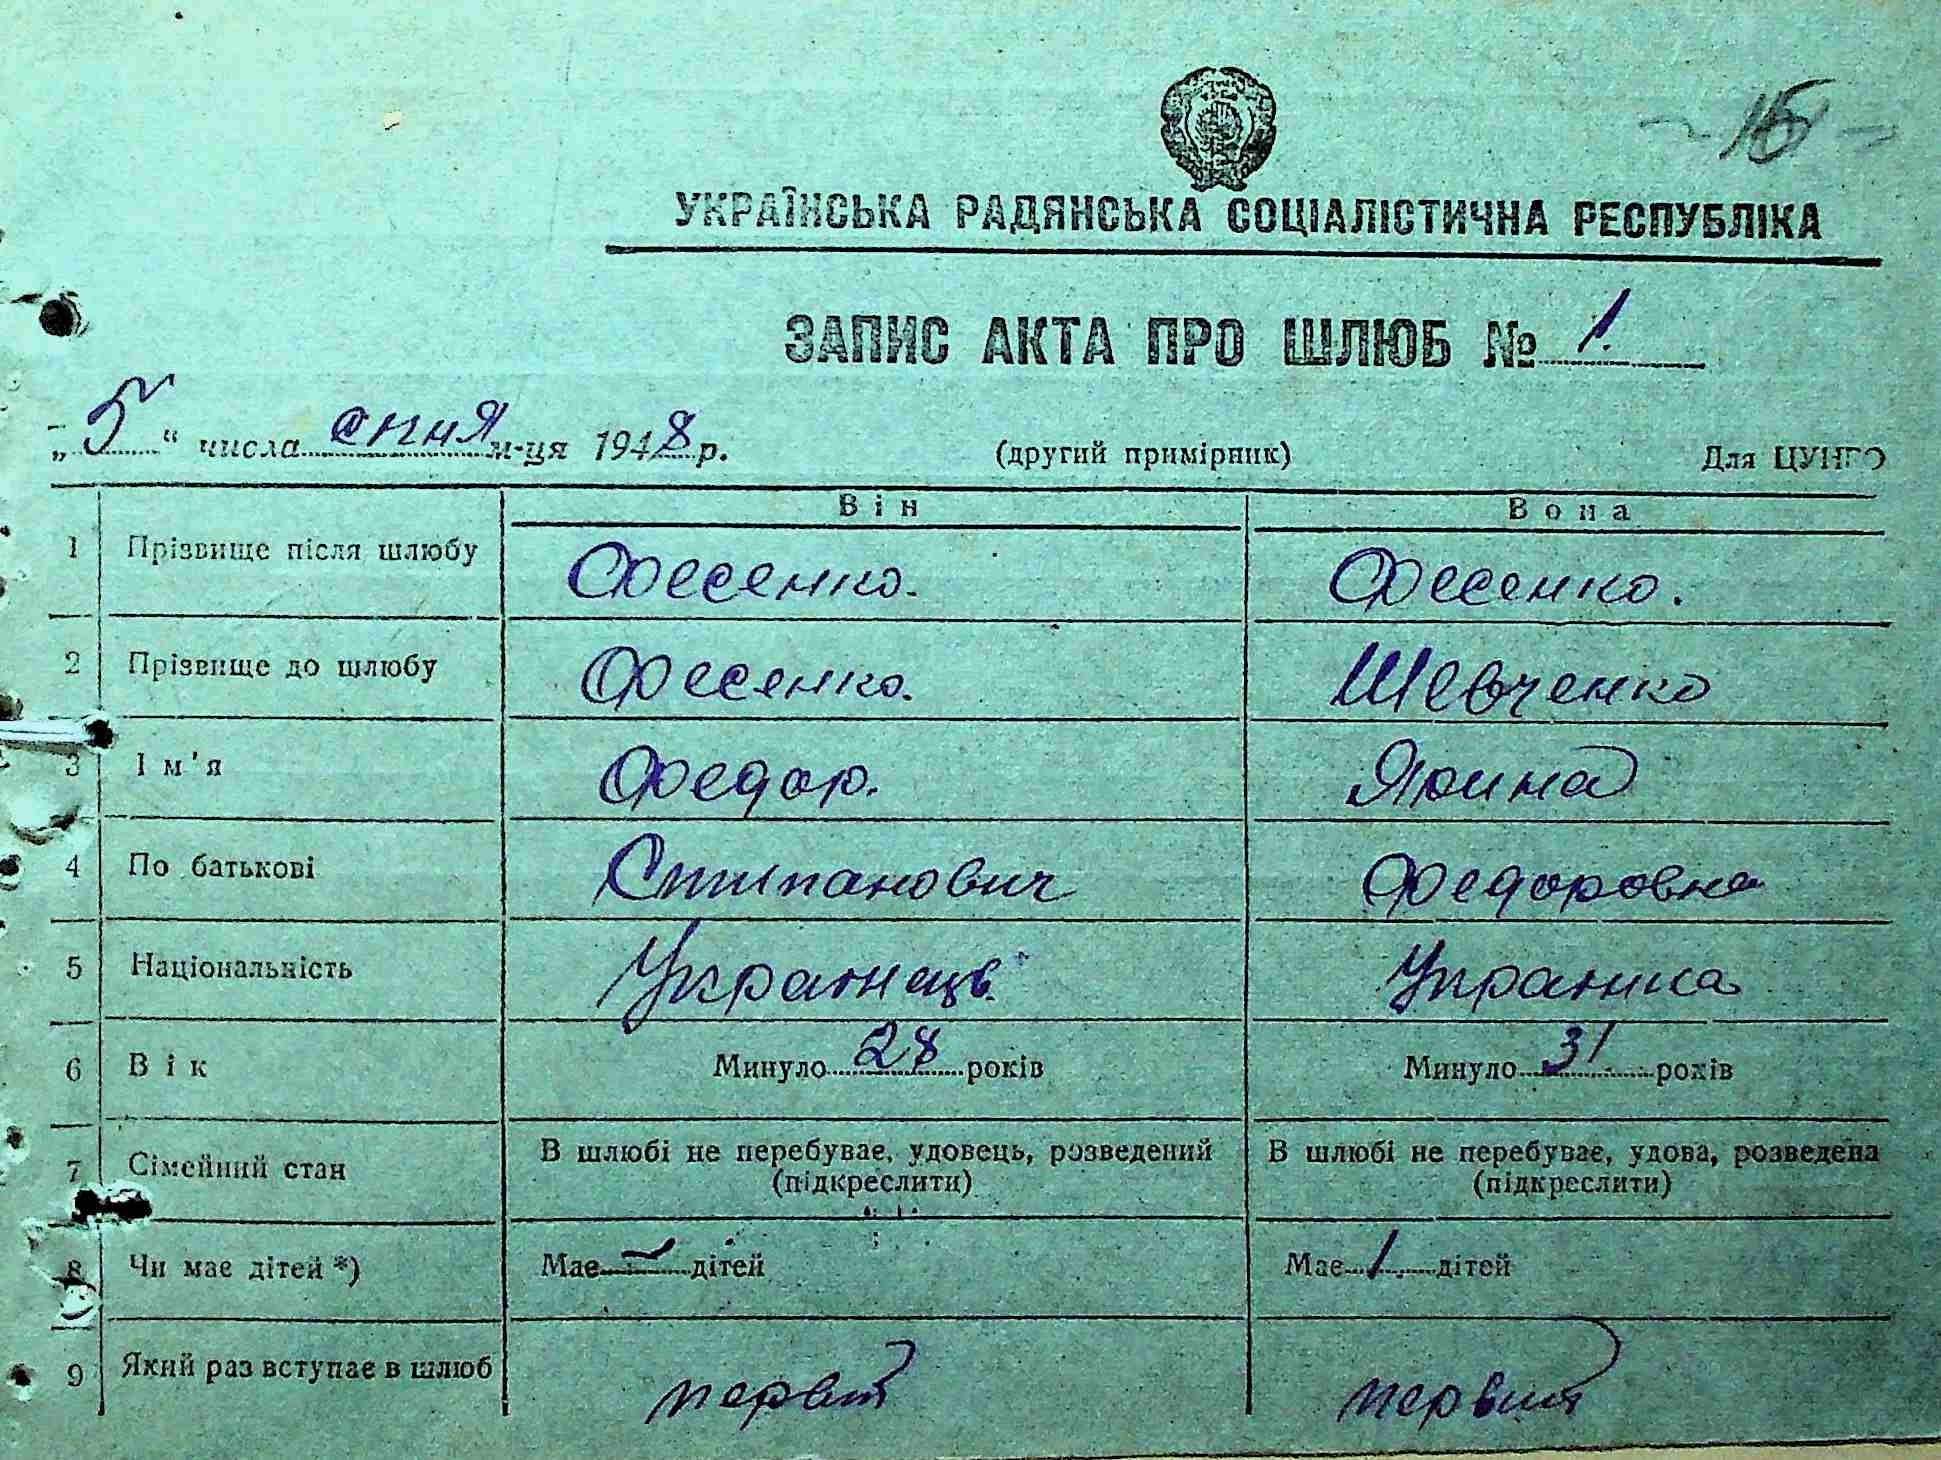 15
УКРАЇНСЬКА РАДЯНСЬКА СОЦІАЛІСТИЧНА РЕСПУБЛІКА
ЗАПИС АКТА ПРО ШЛЮБ № 1.
„5“ числа січня м-ця 1948 р. (другий примірник) Для ЦУНГО
Він Вона
1 Прізвище після шлюбу Фесенко. Фесенко.
2 Прізвище до шлюбу Фесенко. Шевченко
3 Ім'я Федор. Ярина
4 По батькові Степанович Федоровна
5 Національність Українець Українка
6 Вік Минуло 28 років Минуло 31 років
7 Сімейний стан В шлюбі не перебуває, удовець, розведений В шлюбі не перебуває, удова, розведена
(підкреслити) (підкреслити)
8 Чи має дітей *) Має - дітей Має 1. дітей
9 Який раз вступає в шлюб первий первий